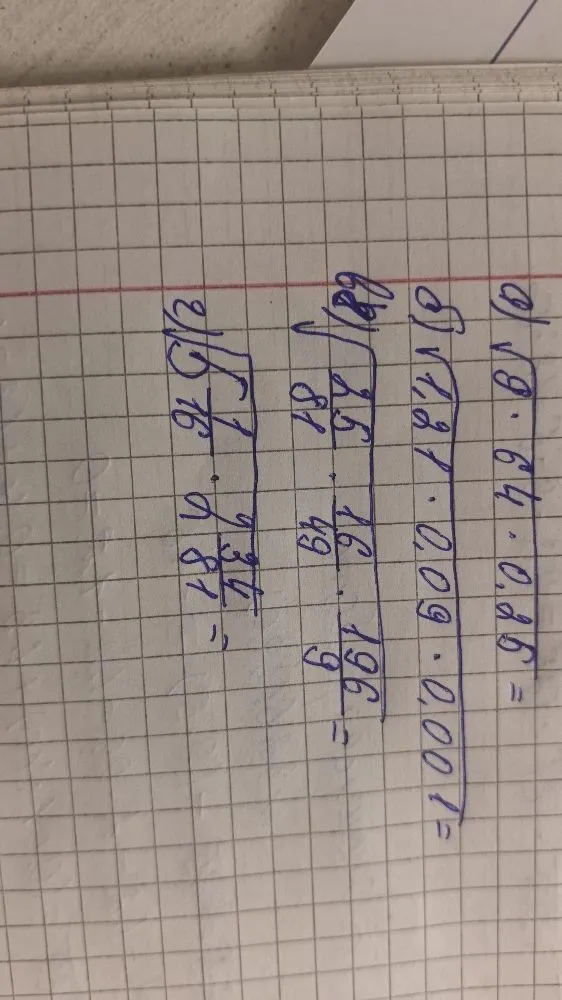 а) √9 · 64 · 0,25 =
б) √1,21 · 0,09 · 0,001 =
в) √25/81 · 16/49 · 196/9 =
г) √5 1/16 · 2 34/81 =